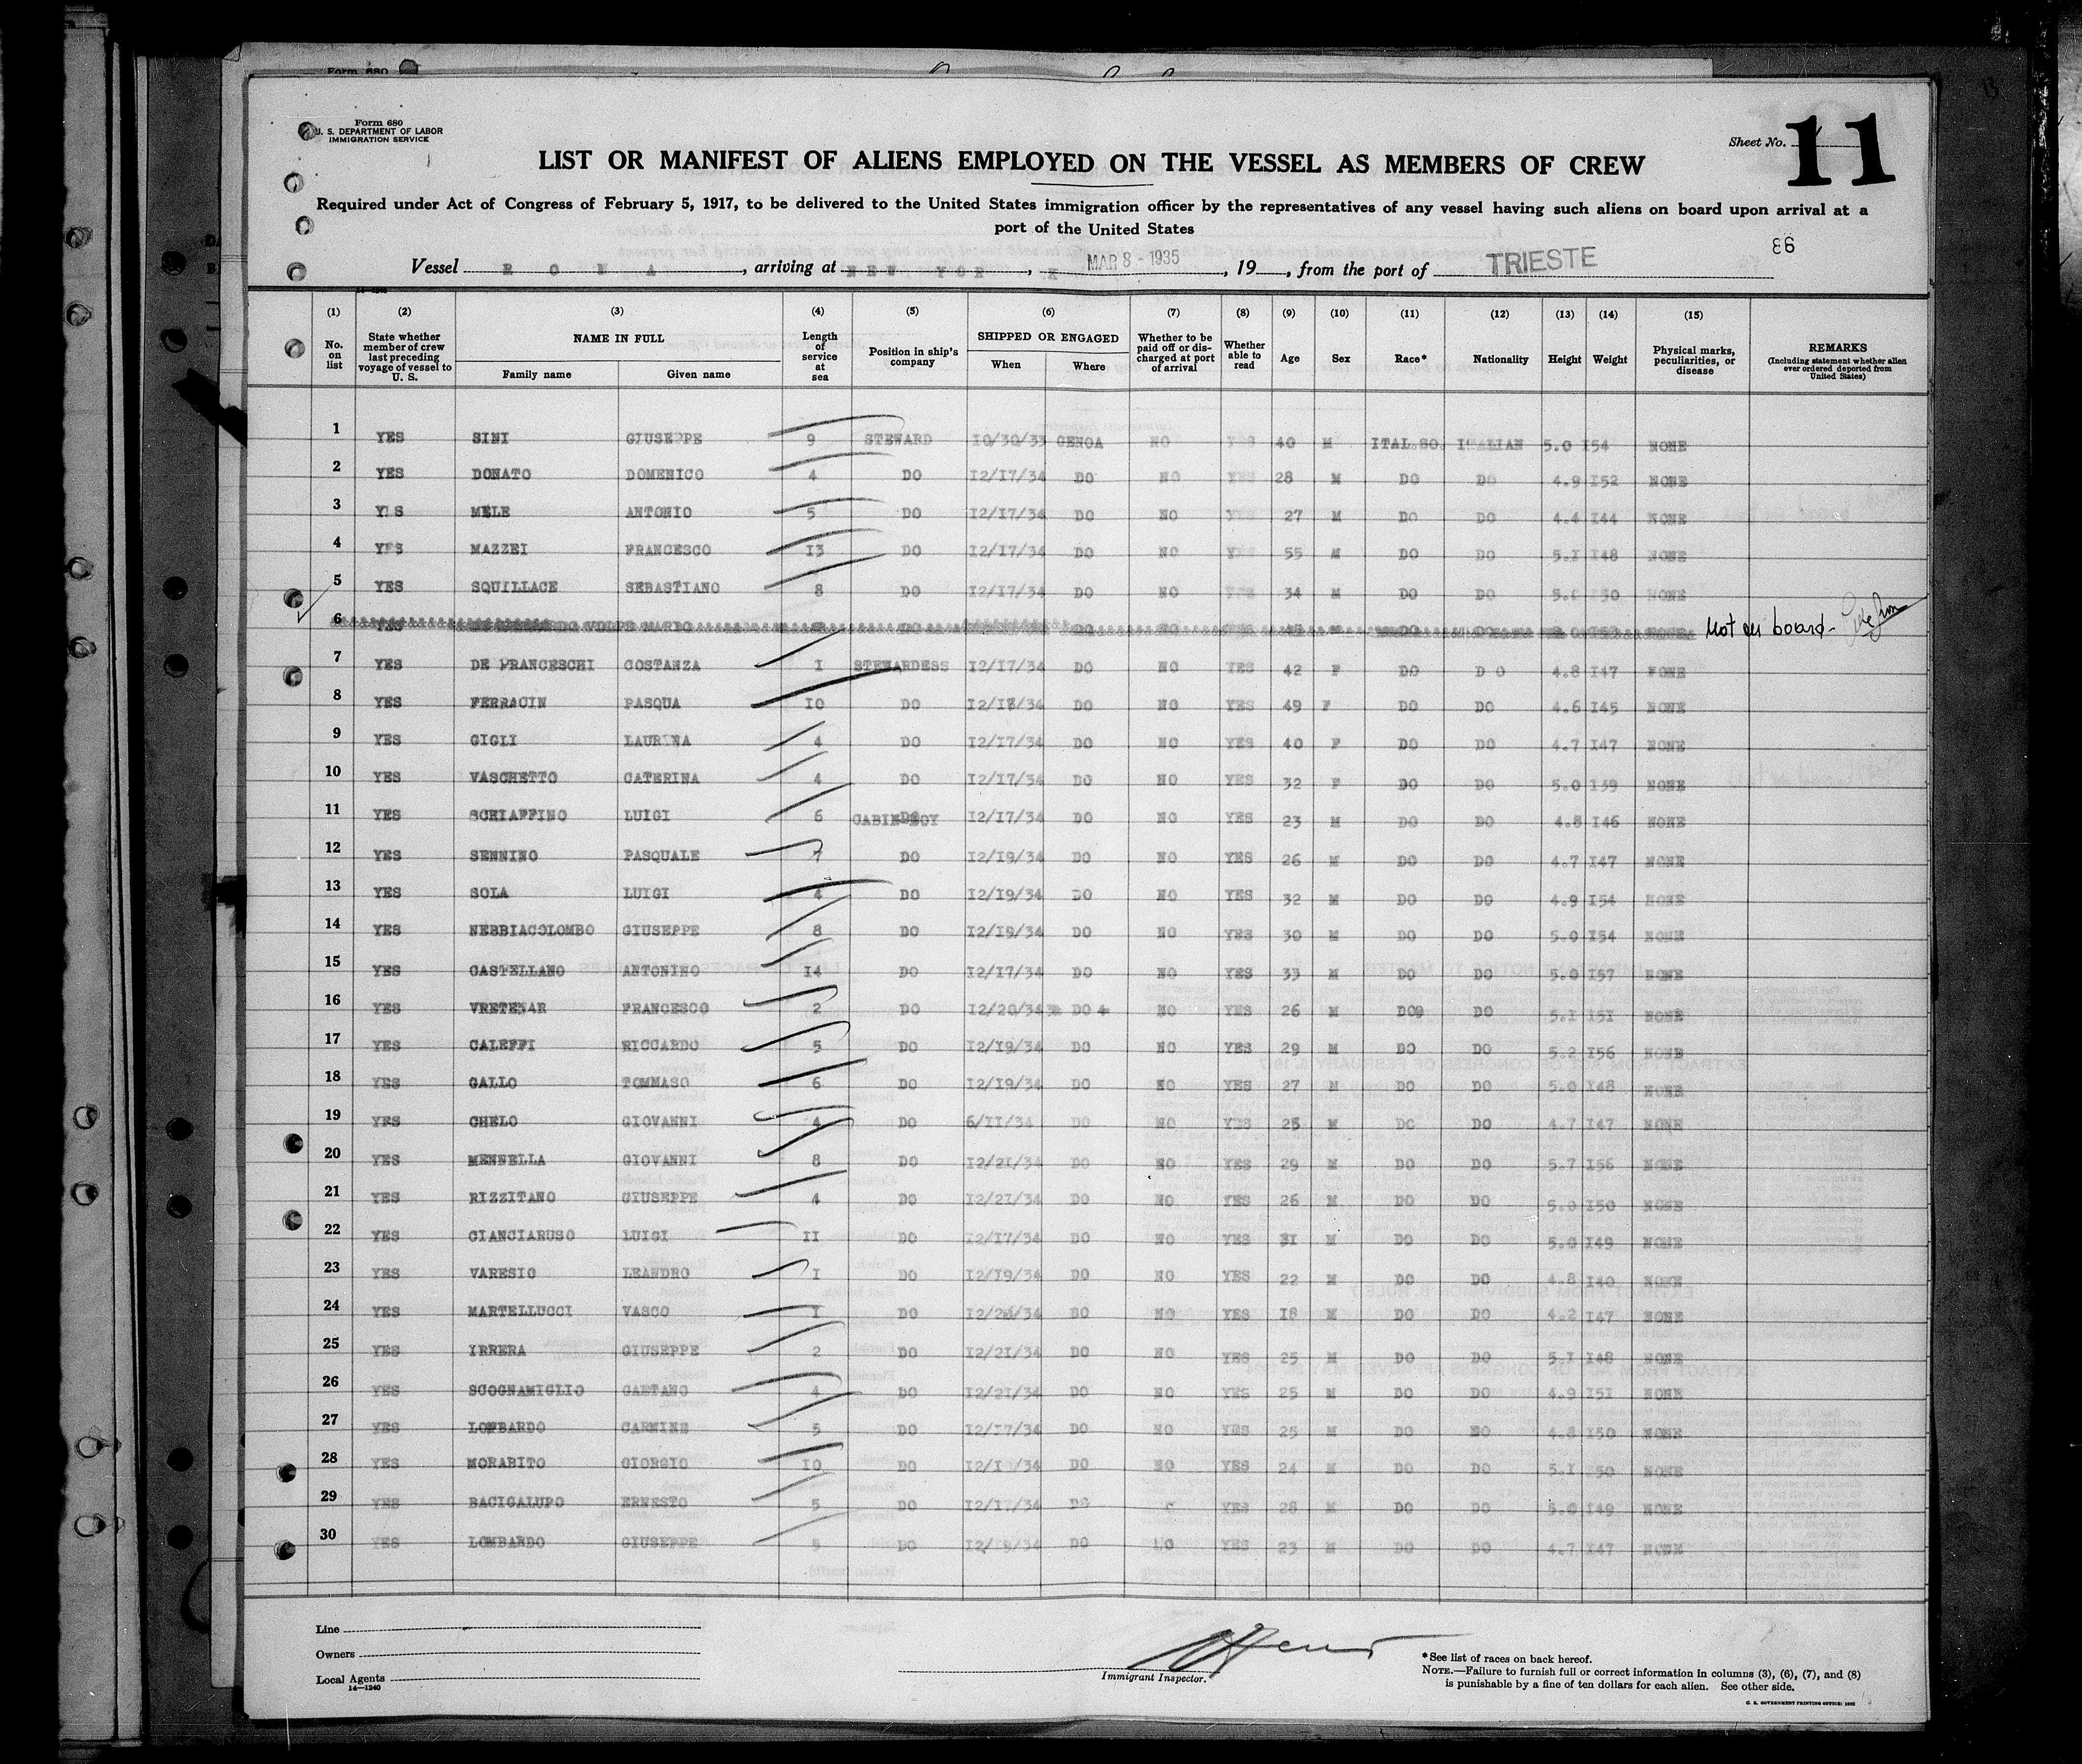 Form 680
Form 680
U. S. DEPARTMENT OF LABOR
IMMIGRATION SERVICE
Sheet No. 11
LIST OR MANIFEST OF ALIENS EMPLOYED ON THE VESSEL AS MEMBERS OF CREW
Required under Act of Congress of February 5, 1917, to be delivered to the United States immigration officer by the representatives of any vessel having such aliens on board upon arrival at a
port of the United States
86
Vessel R O M A, arriving at NEW YORK, MAR 8 - 1935, 19__, from the port of TRIESTE
(1) (2) (3) (4) (5) (6) (7) (8) (9) (10) (11) (12) (13) (14) (15)
No. on list
State whether member of crew last preceding voyage of vessel to U. S.
NAME IN FULL
Family name Given name
Length of service at sea
Position in ship's company
SHIPPED OR ENGAGED
When Where
Whether to be paid off or discharged at port of arrival
Whether able to read
Age Sex Race* Nationality Height Weight
Physical marks, peculiarities, or disease
REMARKS
(Including statement whether alien ever ordered deported from United States)
1 YES SINI GIUSEPPE 9 STEWARD 10/30/33 GENOA NO YES 40 M ITAL.SO. ITALIAN 5.0 154 NONE
2 YES DONATO DOMENICO 4 DO 12/17/34 DO NO YES 28 M DO DO 4.9 152 NONE
3 YES MELE ANTONIO 5 DO 12/17/34 DO NO YES 27 M DO DO 4.4 144 NONE
4 YES MAZZEI FRANCESCO 13 DO 12/17/34 DO NO YES 55 M DO DO 5.1 148 NONE
5 YES SQUILLACE SEBASTIANO 8 DO 12/17/34 DO NO YES 34 M DO DO NONE
6 Not on board-
7 YES DE FRANCESCHI COSTANZA 1 STEWARDESS 12/17/34 DO NO YES 42 F DO D O 4.8 147 NONE
8 YES FERRACIN PASQUA 10 DO 12/18/34 DO NO YES 49 F DO DO 4.6 145 NONE
9 YES GIGLI LAURINA 4 DO 12/17/34 DO NO YES 40 F DO DO 4.7 147 NONE
10 YES VASCHETTO CATERINA 4 DO 12/17/34 DO NO YES 32 F DO DO 5.0 159 NONE
11 YES SCHIAFFINO LUIGI 6 CABIN BOY 12/17/34 DO NO YES 23 M DO DO 4.8 146 NONE
12 YES SENNINO PASQUALE 7 DO 12/19/34 DO NO YES 26 M DO DO 4.7 147 NONE
13 YES SOLA LUIGI 4 DO 12/19/34 DO NO YES 32 M DO DO 4.9 154 NONE
14 YES NEBBIACOLOMBO GIUSEPPE 8 DO 12/19/34 DO NO YES 30 M DO DO 5.0 154 NONE
15 YES CASTELLANO ANTONINO 14 DO 12/17/34 DO NO YES 33 M DO DO 5.0 157 NONE
16 YES VRETENAR FRANCESCO 2 DO 12/20/34 DO NO YES 26 M DO DO 5.1 151 NONE
17 YES CALEFFI RICCARDO 5 DO 12/19/34 DO NO YES 29 M DO DO 5.2 156 NONE
18 YES GALLO TOMMASO 6 DO 12/19/34 DO NO YES 27 M DO DO 5.0 148 NONE
19 YES CHELO GIOVANNI 4 DO 6/11/34 DO NO YES 25 M DO DO 4.7 147 NONE
20 YES MENNELLA GIOVANNI 8 DO 12/21/34 DO NO YES 29 M DO DO 5.7 156 NONE
21 YES RIZZITANO GIUSEPPE 4 DO 12/21/34 DO NO YES 26 M DO DO 5.0 150 NONE
22 YES CIANCIARUSO LUIGI 11 DO 12/17/34 DO NO YES 31 M DO DO 5.0 149 NONE
23 YES VARESIO LEANDRO 1 DO 12/19/34 DO NO YES 22 M DO DO 4.8 140 NONE
24 YES MARTELLUCCI VASCO 1 DO DO NO YES 18 M DO DO 4.2 147 NONE
25 YES IRRERA GIUSEPPE 2 DO 12/21/34 DO NO YES 25 M DO DO 5.1 148 NONE
26 YES SCOGNAMIGLIO GAETANO 4 DO 12/21/34 DO NO YES 25 M DO DO 4.9 151 NONE
27 YES LOMBARDO CARMINE 5 DO 12/17/34 DO NO YES 25 M DO DO 4.8 150 NONE
28 YES MORABITO GIORGIO 10 DO DO NO YES 24 M DO DO 5.1 NONE
29 YES BACIGALUPO ERNESTO 5 DO 12/17/34 DO YES 28 M DO DO 5.0 149 NONE
30 YES LOMBARDO GIUSEPPE 5 DO DO NO YES 23 M DO DO 4.7 147 NONE
Line
Owners
Local Agents
14—1240
Immigrant Inspector.
*See list of races on back hereof.
NOTE.—Failure to furnish full or correct information in columns (3), (6), (7), and (8)
is punishable by a fine of ten dollars for each alien. See other side.
U. S. GOVERNMENT PRINTING OFFICE: 1932